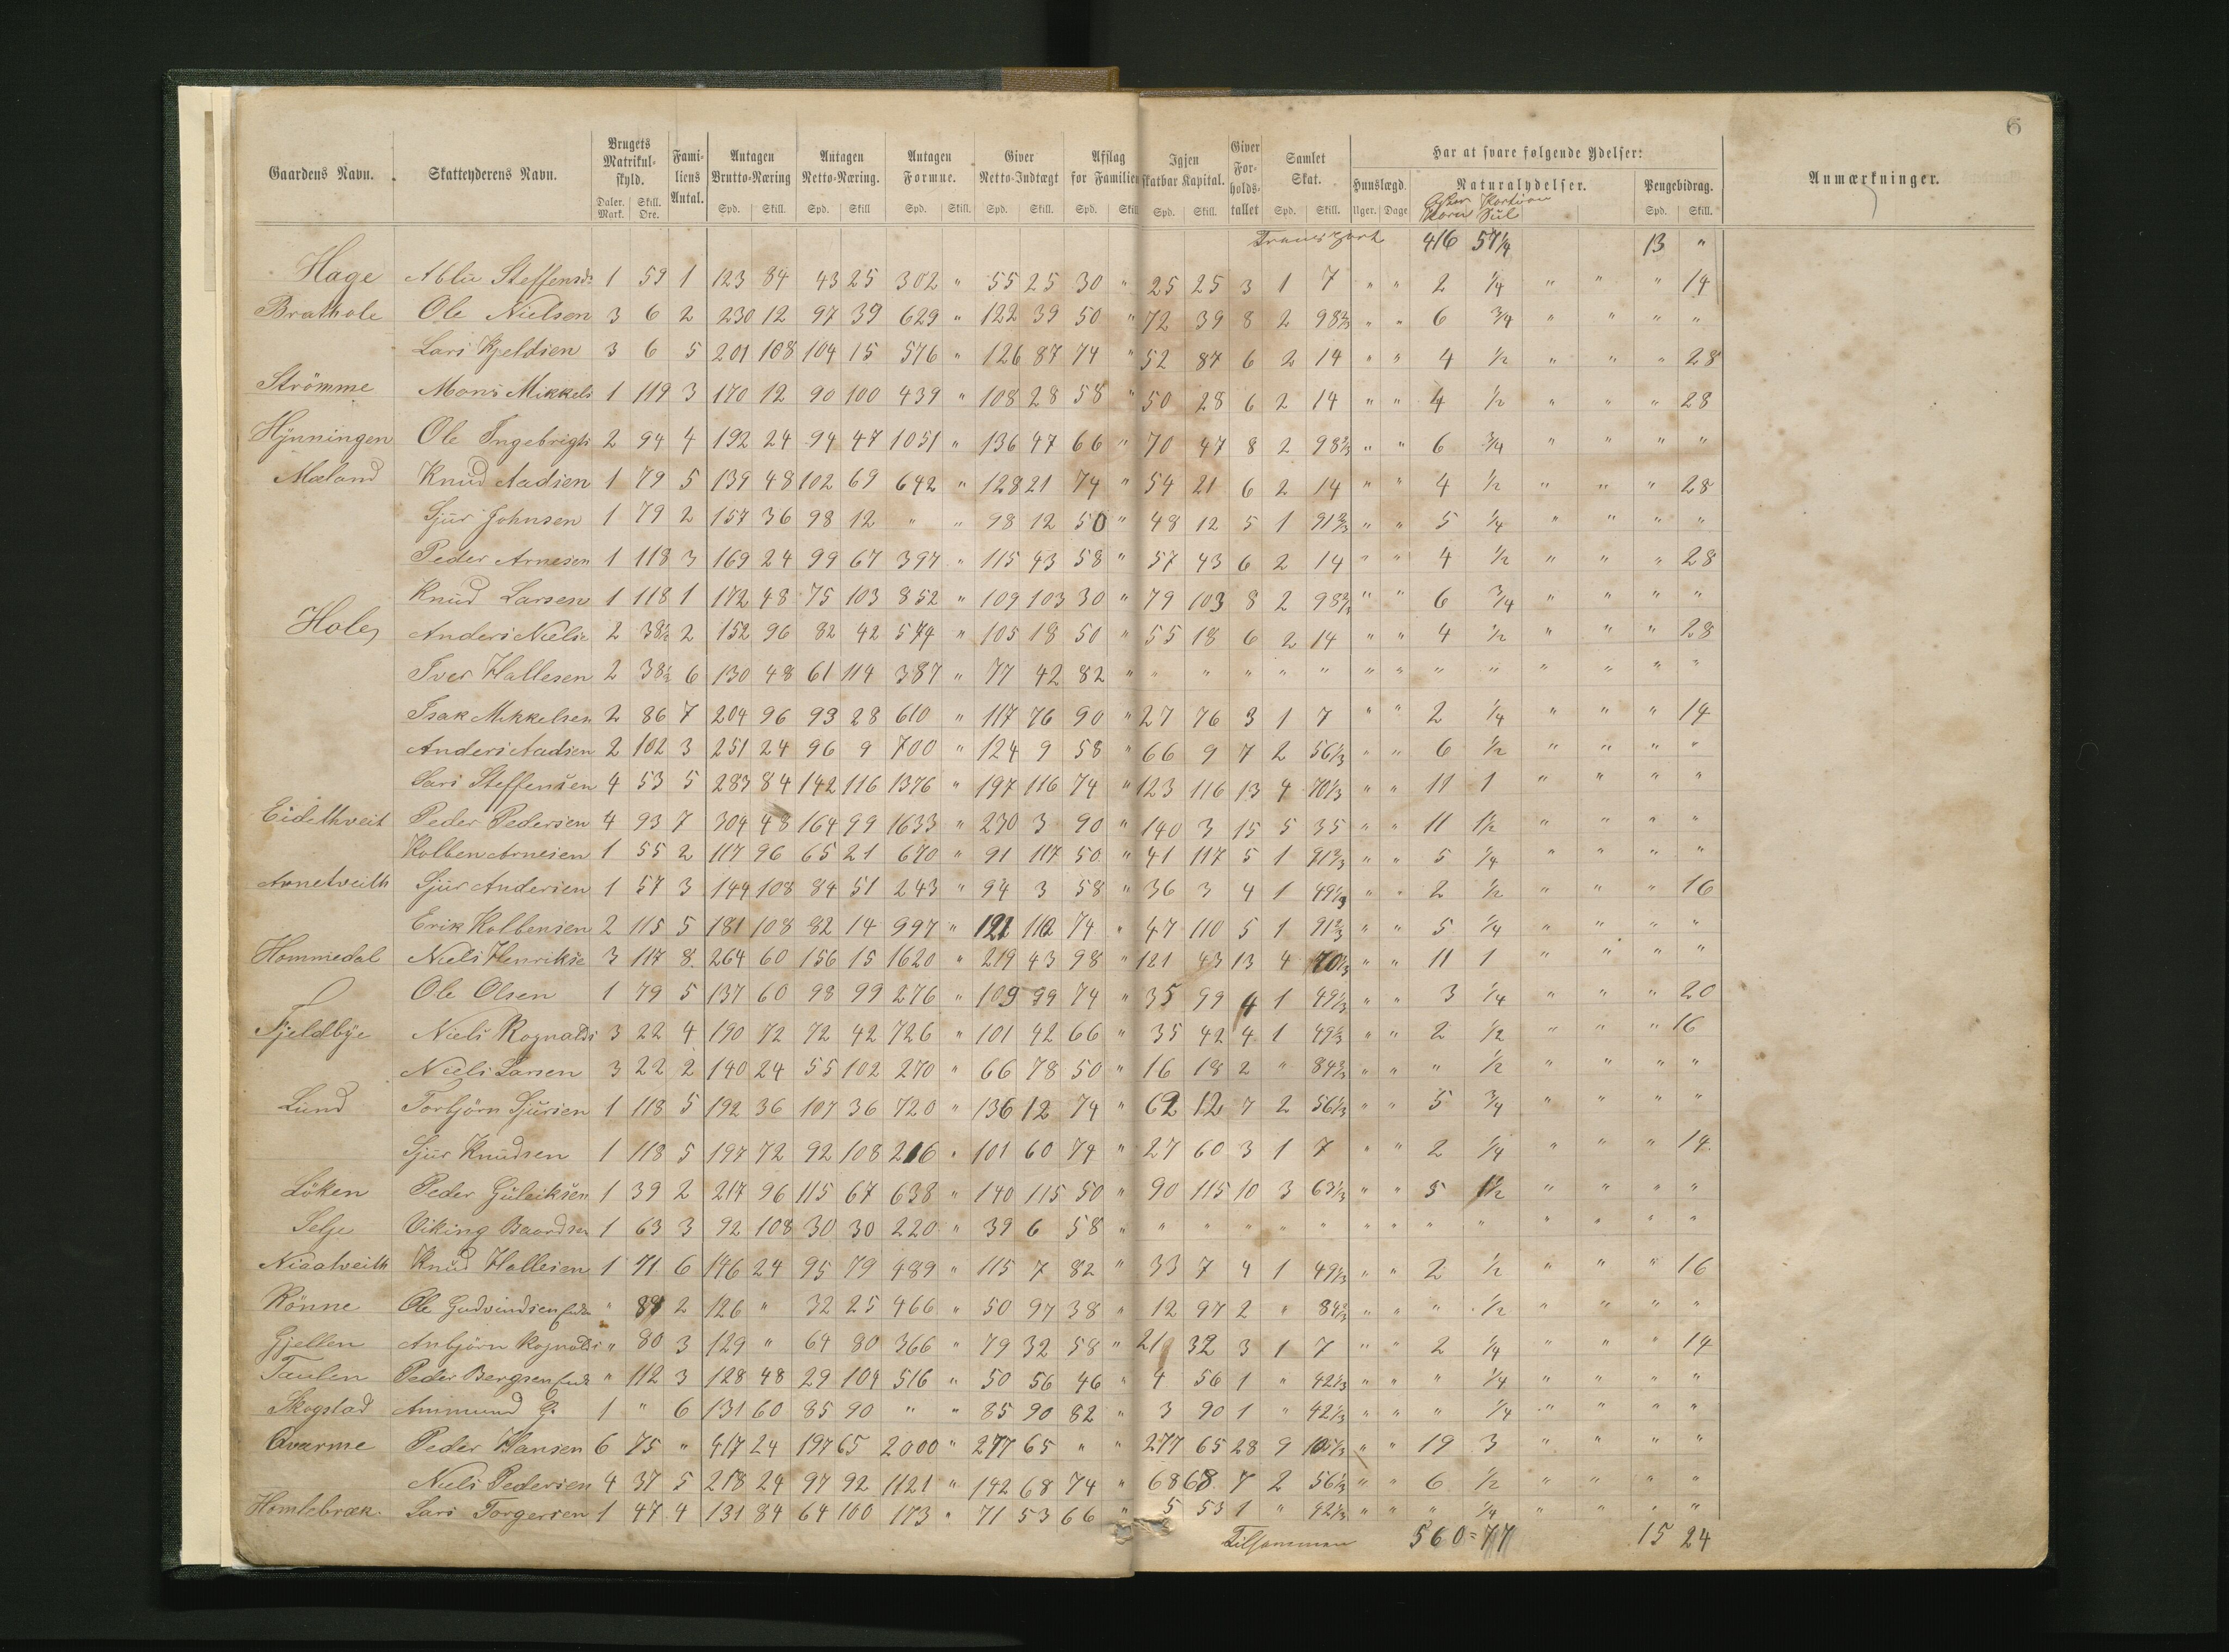 6
Gaardens Navn. Skatteyderens Navn. Brugets Matrikul-skyld. Fami-liens Antal. Antagen Brutto-Næring Antagen Netto-Næring. Antagen Formue. Giver Netto-Indtægt Afslag for Familien Igjen skatbar Kapital. Giver For-holds-tallet Samlet Skat. Har at svare følgende Ydelser: Anmærkninger.
Hunslægd. Naturalydelser. Pengebidrag.
Daler. Mark. Skill. Ore. Spd. Skill. Spd. Skill Spd. Skill. Spd. Skill. Spd. Skill Spd. Skill. Spd. Skill. Uger. Dage Korn Sul Spd. Skill.
Transport 416 57 1/4 13 "
Hage Ablu Steffensdr 1 59 1 123 84 43 25 302 " 55 25 30 " 25 25 3 1 7 " " 2 1/4 " " " 14
Brathole Ole Nielsen 3 6 2 230 12 97 39 629 " 122 39 50 " 72 39 8 2 98 2/3 " " 6 3/4 " " " "
Lars Kjeldsen 3 6 5 201 108 104 15 576 " 126 87 74 " 52 87 6 2 14 " " 4 1/2 " " " 28
Strömme Mons Mikkels 1 119 3 170 12 90 100 439 " 108 28 58 " 50 28 6 2 14 " " 4 1/2 " " " 28
Hynningen Ole Ingebrigts 2 94 4 192 24 94 47 1051 " 136 47 66 " 70 47 8 2 98 2/3 " " 6 3/4 " " " "
Mæland Knud Aadsen 1 79 5 139 48 102 69 642 " 128 21 74 " 54 21 6 2 14 " " 4 1/2 " " " 28
Sjur Johnsen 1 79 2 157 36 98 12 " " 98 12 50 " 48 12 5 1 91 2/3 " " 5 1/4 " " " "
Peder Arnesen 1 118 3 169 24 99 67 397 " 115 43 58 " 57 43 6 2 14 " " 4 1/2 " " " 28
Knud Larsen 1 118 1 172 48 75 103 852 " 109 103 30 " 79 103 8 2 98 2/3 " " 6 3/4 " " " "
Hole Anders Nielse 2 38 1/2 2 152 96 82 42 574 " 105 18 50 " 55 18 6 2 14 " " 4 1/2 " " " 28
Iver Hallesen 2 38 1/2 6 130 48 61 114 387 " 77 42 82 " " " " " " " " " " " " " "
Isak Mikkelsen 2 86 7 204 96 93 28 610 " 117 76 90 " 27 76 3 1 7 " " 2 1/4 " " " 14
Anders Aadsen 2 102 3 251 24 96 9 700 " 124 9 58 " 66 9 7 2 56 1/3 " " 6 1/2 " " " "
Lars Steffensen 4 53 5 283 84 142 116 1376 " 197 116 74 " 123 116 13 4 70 1/3 " " 11 1 " " " "
Eidethveit Peder Pedersen 4 93 7 304 48 164 99 1633 " 230 3 90 " 140 3 15 5 35 " " 11 1 1/2 " " " "
Kolben Arnesen 1 55 2 117 96 65 21 670 " 91 117 50 " 41 117 5 1 91 2/3 " " 5 1/4 " " " "
Arnetveith Sjur Andersen 1 57 3 144 108 84 51 243 " 94 3 58 " 36 3 4 1 49 1/3 " " 2 1/2 " " " 16
Erik Kolbensen 2 115 5 181 108 82 14 997 " 121 110 74 " 47 110 5 1 91 2/3 " " 5 1/4 " " " "
Hommedal Niels Henrikse 3 117 8 264 60 156 15 1620 " 219 43 98 " 121 43 13 4 70 1/3 " " 11 1 " " " "
Ole Olsen 1 79 5 137 60 98 99 276 " 109 99 74 " 35 99 4 1 49 1/3 " " 3 1/4 " " " 20
Fjeldbye Niels Rognalds 3 22 4 190 72 72 42 726 " 101 42 66 " 35 42 4 1 49 1/3 " " 2 1/2 " " " 16
Niels Larsen 3 22 2 140 24 55 102 270 " 66 78 50 " 16 18 2 " 84 2/3 " " " 1/2 " " " "
Lund Torbjörn Sjursen 1 118 5 192 36 107 36 720 " 136 12 74 " 62 12 7 2 56 1/3 " " 5 3/4 " " " "
Sjur Knudsen 1 118 5 197 72 92 108 216 " 101 60 74 " 27 60 3 1 7 " " 2 1/4 " " " 14
Löken Peder Guleiksen 1 39 2 217 96 115 67 638 " 140 115 50 " 90 115 10 3 63 1/3 " " 5 1 1/2 " " " "
Selje Viking Baardsen 1 63 3 92 108 30 30 220 " 39 6 58 " " " " " " " " " " " " " "
Niaatveith Knud Hallesen 1 71 6 146 24 95 79 489 " 115 7 82 " 33 7 4 1 49 1/3 " " 2 1/2 " " " 16
Rönne Ole Gudvindsen " 87 2 126 " 32 25 466 " 50 97 38 " 12 97 2 " 84 2/3 " " " 1/2 " " " "
Gjellen Anbjörn Rognalds " 80 3 129 " 64 80 366 " 79 32 58 " 21 32 3 1 7 " " 2 1/4 " " " 14
Taulen Peder Bergsen " 112 3 128 48 29 104 516 " 50 56 46 " 4 56 1 " 42 1/3 " " " 1/4 " " " "
Skogstad Ammund G. 1 " 6 131 60 85 90 " " 85 90 82 " 3 90 1 " 42 1/3 " " " 1/4 " " " "
Qvarme Peder Hansen 6 75 " 417 24 197 65 2000 " 277 65 " " 277 65 28 9 105 1/3 " " 19 3 " " " "
Niels Pedersen 4 37 5 218 24 97 92 1121 " 142 68 74 " 68 68 7 2 56 1/3 " " 6 1/2 " " " "
Homlebræk Lars Torgersen 1 47 4 131 84 64 100 173 " 71 53 66 " 5 53 1 " 42 1/3 " " " 1/4 " " " "
Tilsammen 560 = 77 15 24